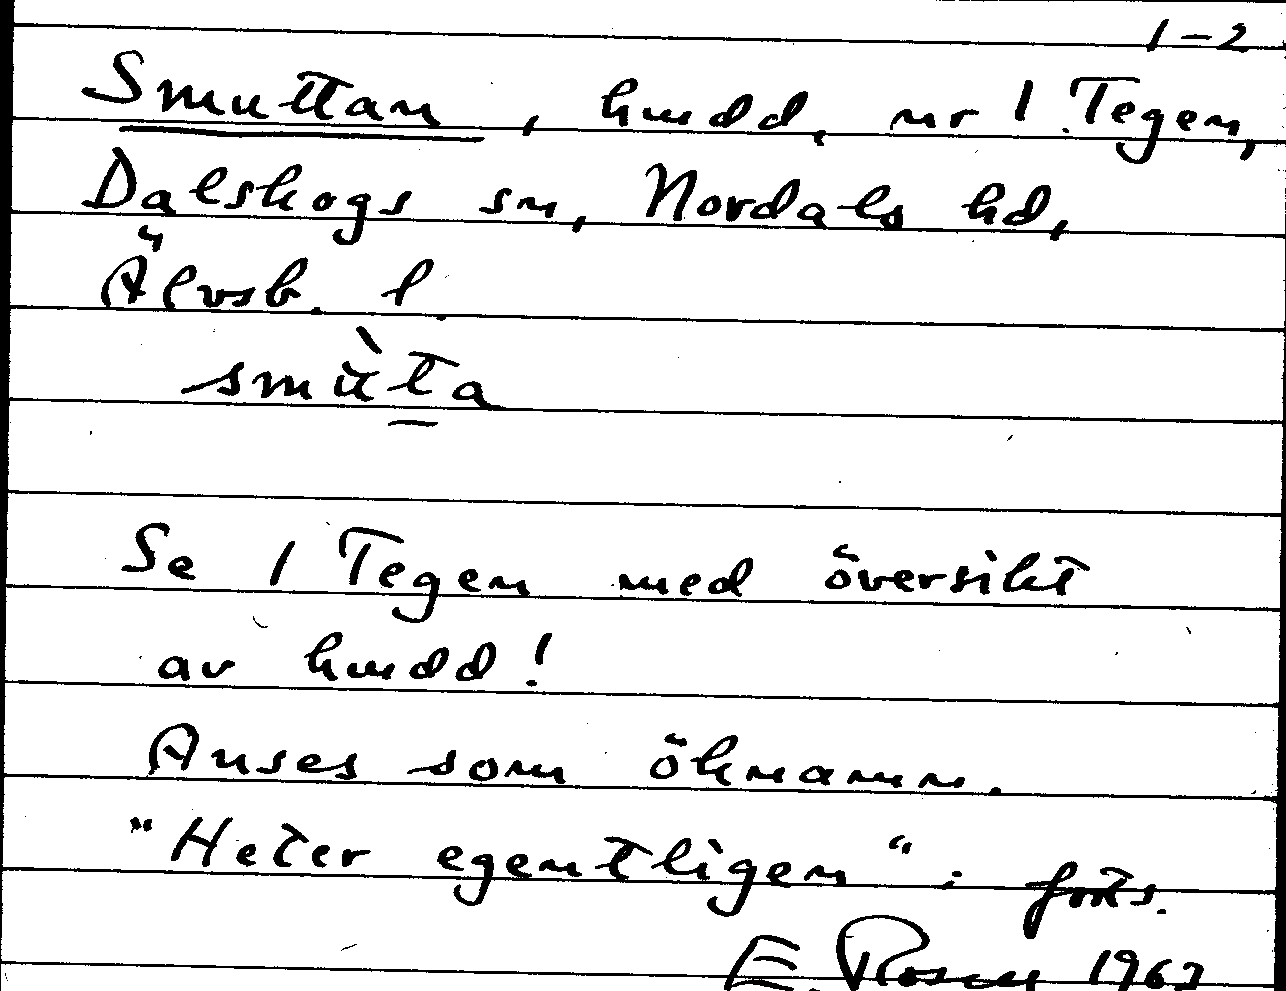 1-2
Smuttan, hmdd, nr 1 Tegen,
Dalskogs sn, Nordals hd,
Älvsb. l.
smùta
Se 1 Tegen med översikt
av hmdd!
Anses som öknamn.
"Heter egentligen": forts.
E. Rosén 1962